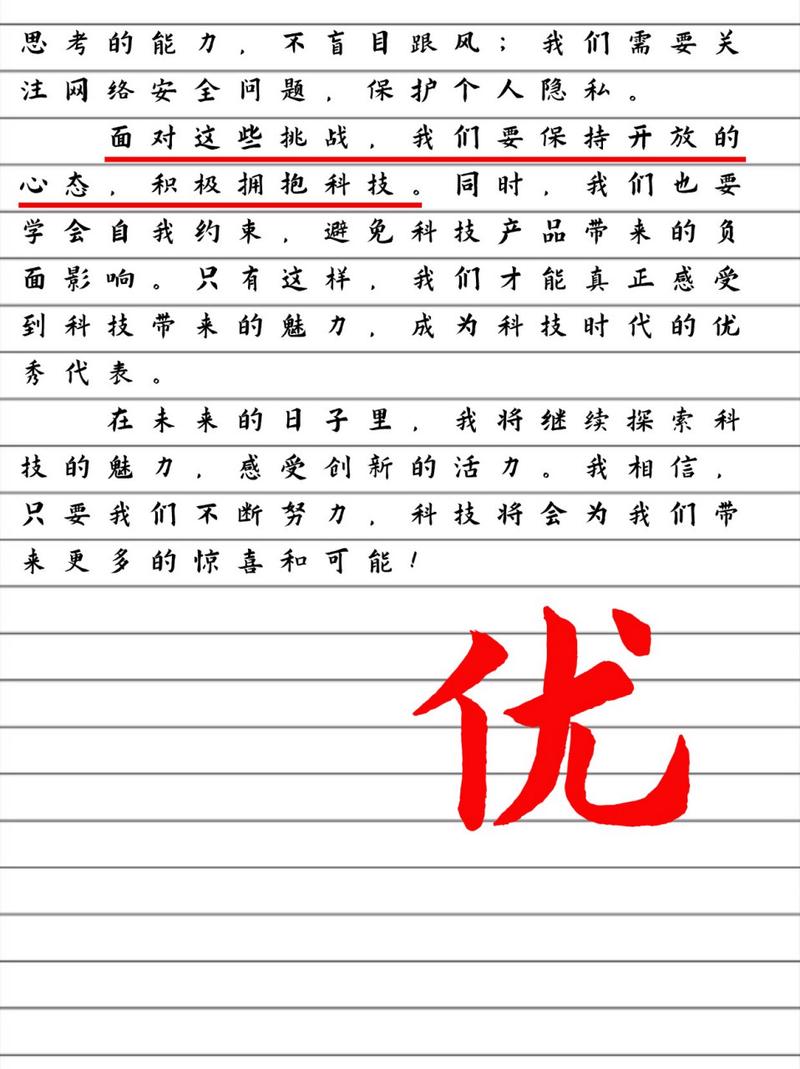 思考的能力，不盲目跟风；我们需要关
注网络安全问题，保护个人隐私。
面对这些挑战，我们要保持开放的
心态，积极拥抱科技。同时，我们也要
学会自我约束，避免科技产品带来的负
面影响。只有这样，我们才能真正感受
到科技带来的魅力，成为科技时代的优
秀代表。
在未来的日子里，我将继续探索科
技的魅力，感受创新的活力。我相信，
只要我们不断努力，科技将会为我们带
来更多的惊喜和可能！
优